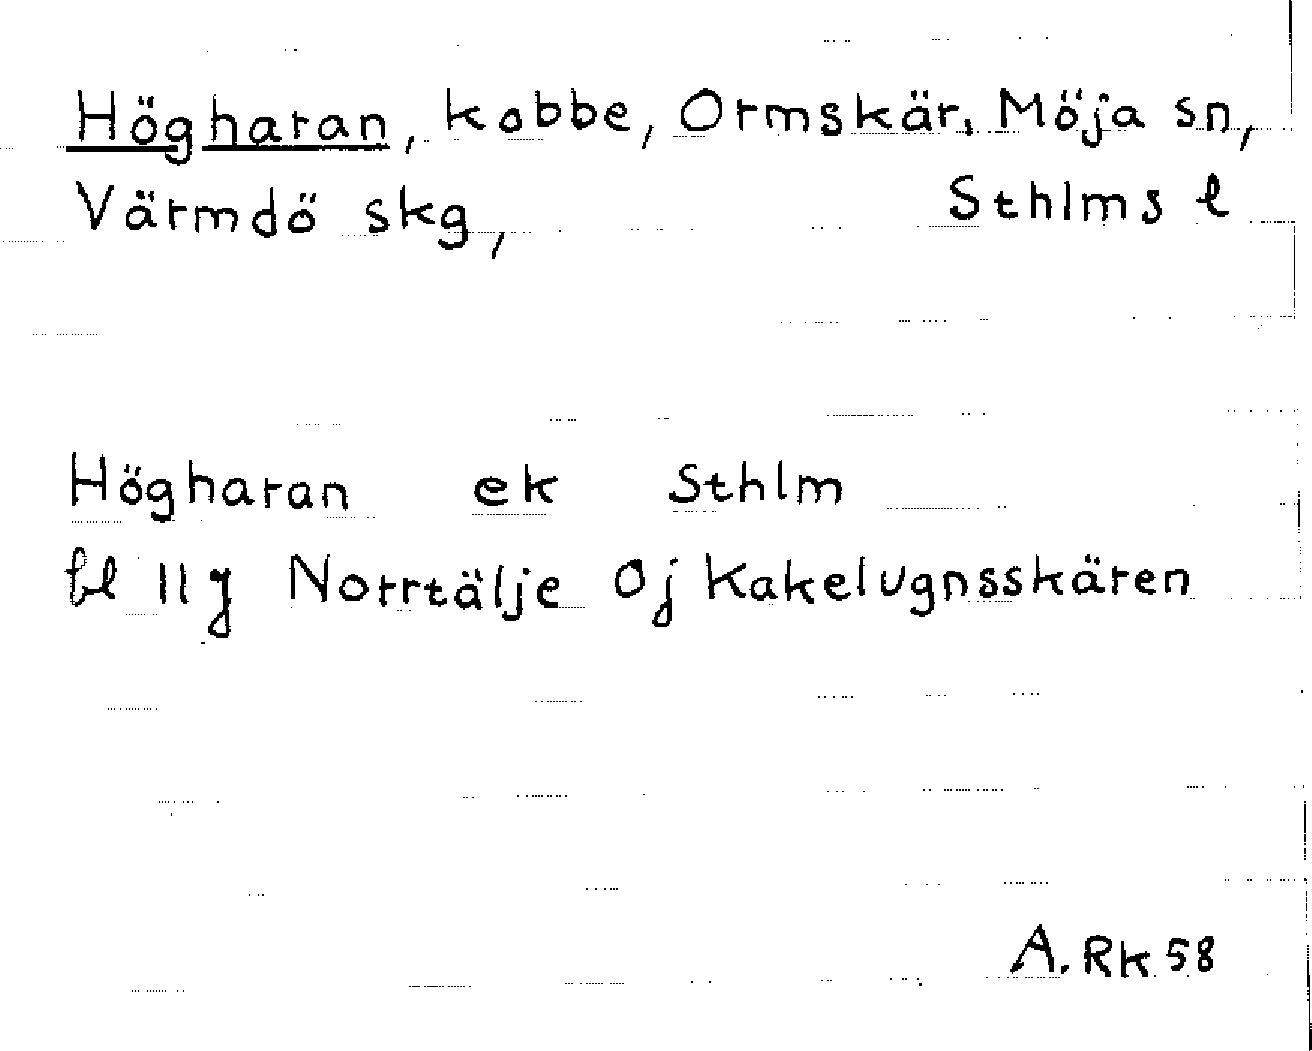 Högharan, kobbe, Ormskär, Möja sn,
Värmdö skg, Sthlms l
Högharan ek Sthlm
bl 11 g Norrtälje 0j Kakelugnsskären
A. Rk 58